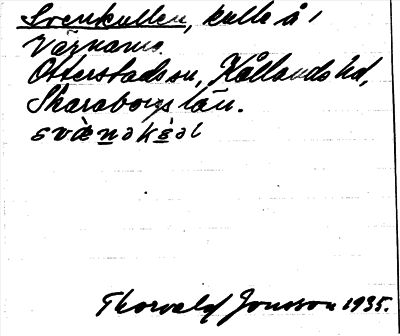 Svenkullen, kulle å 1
Värnamo.
Otterstads sn, Kållands hd,
Skaraborgs län.
Thorvald Jonsson 1935.